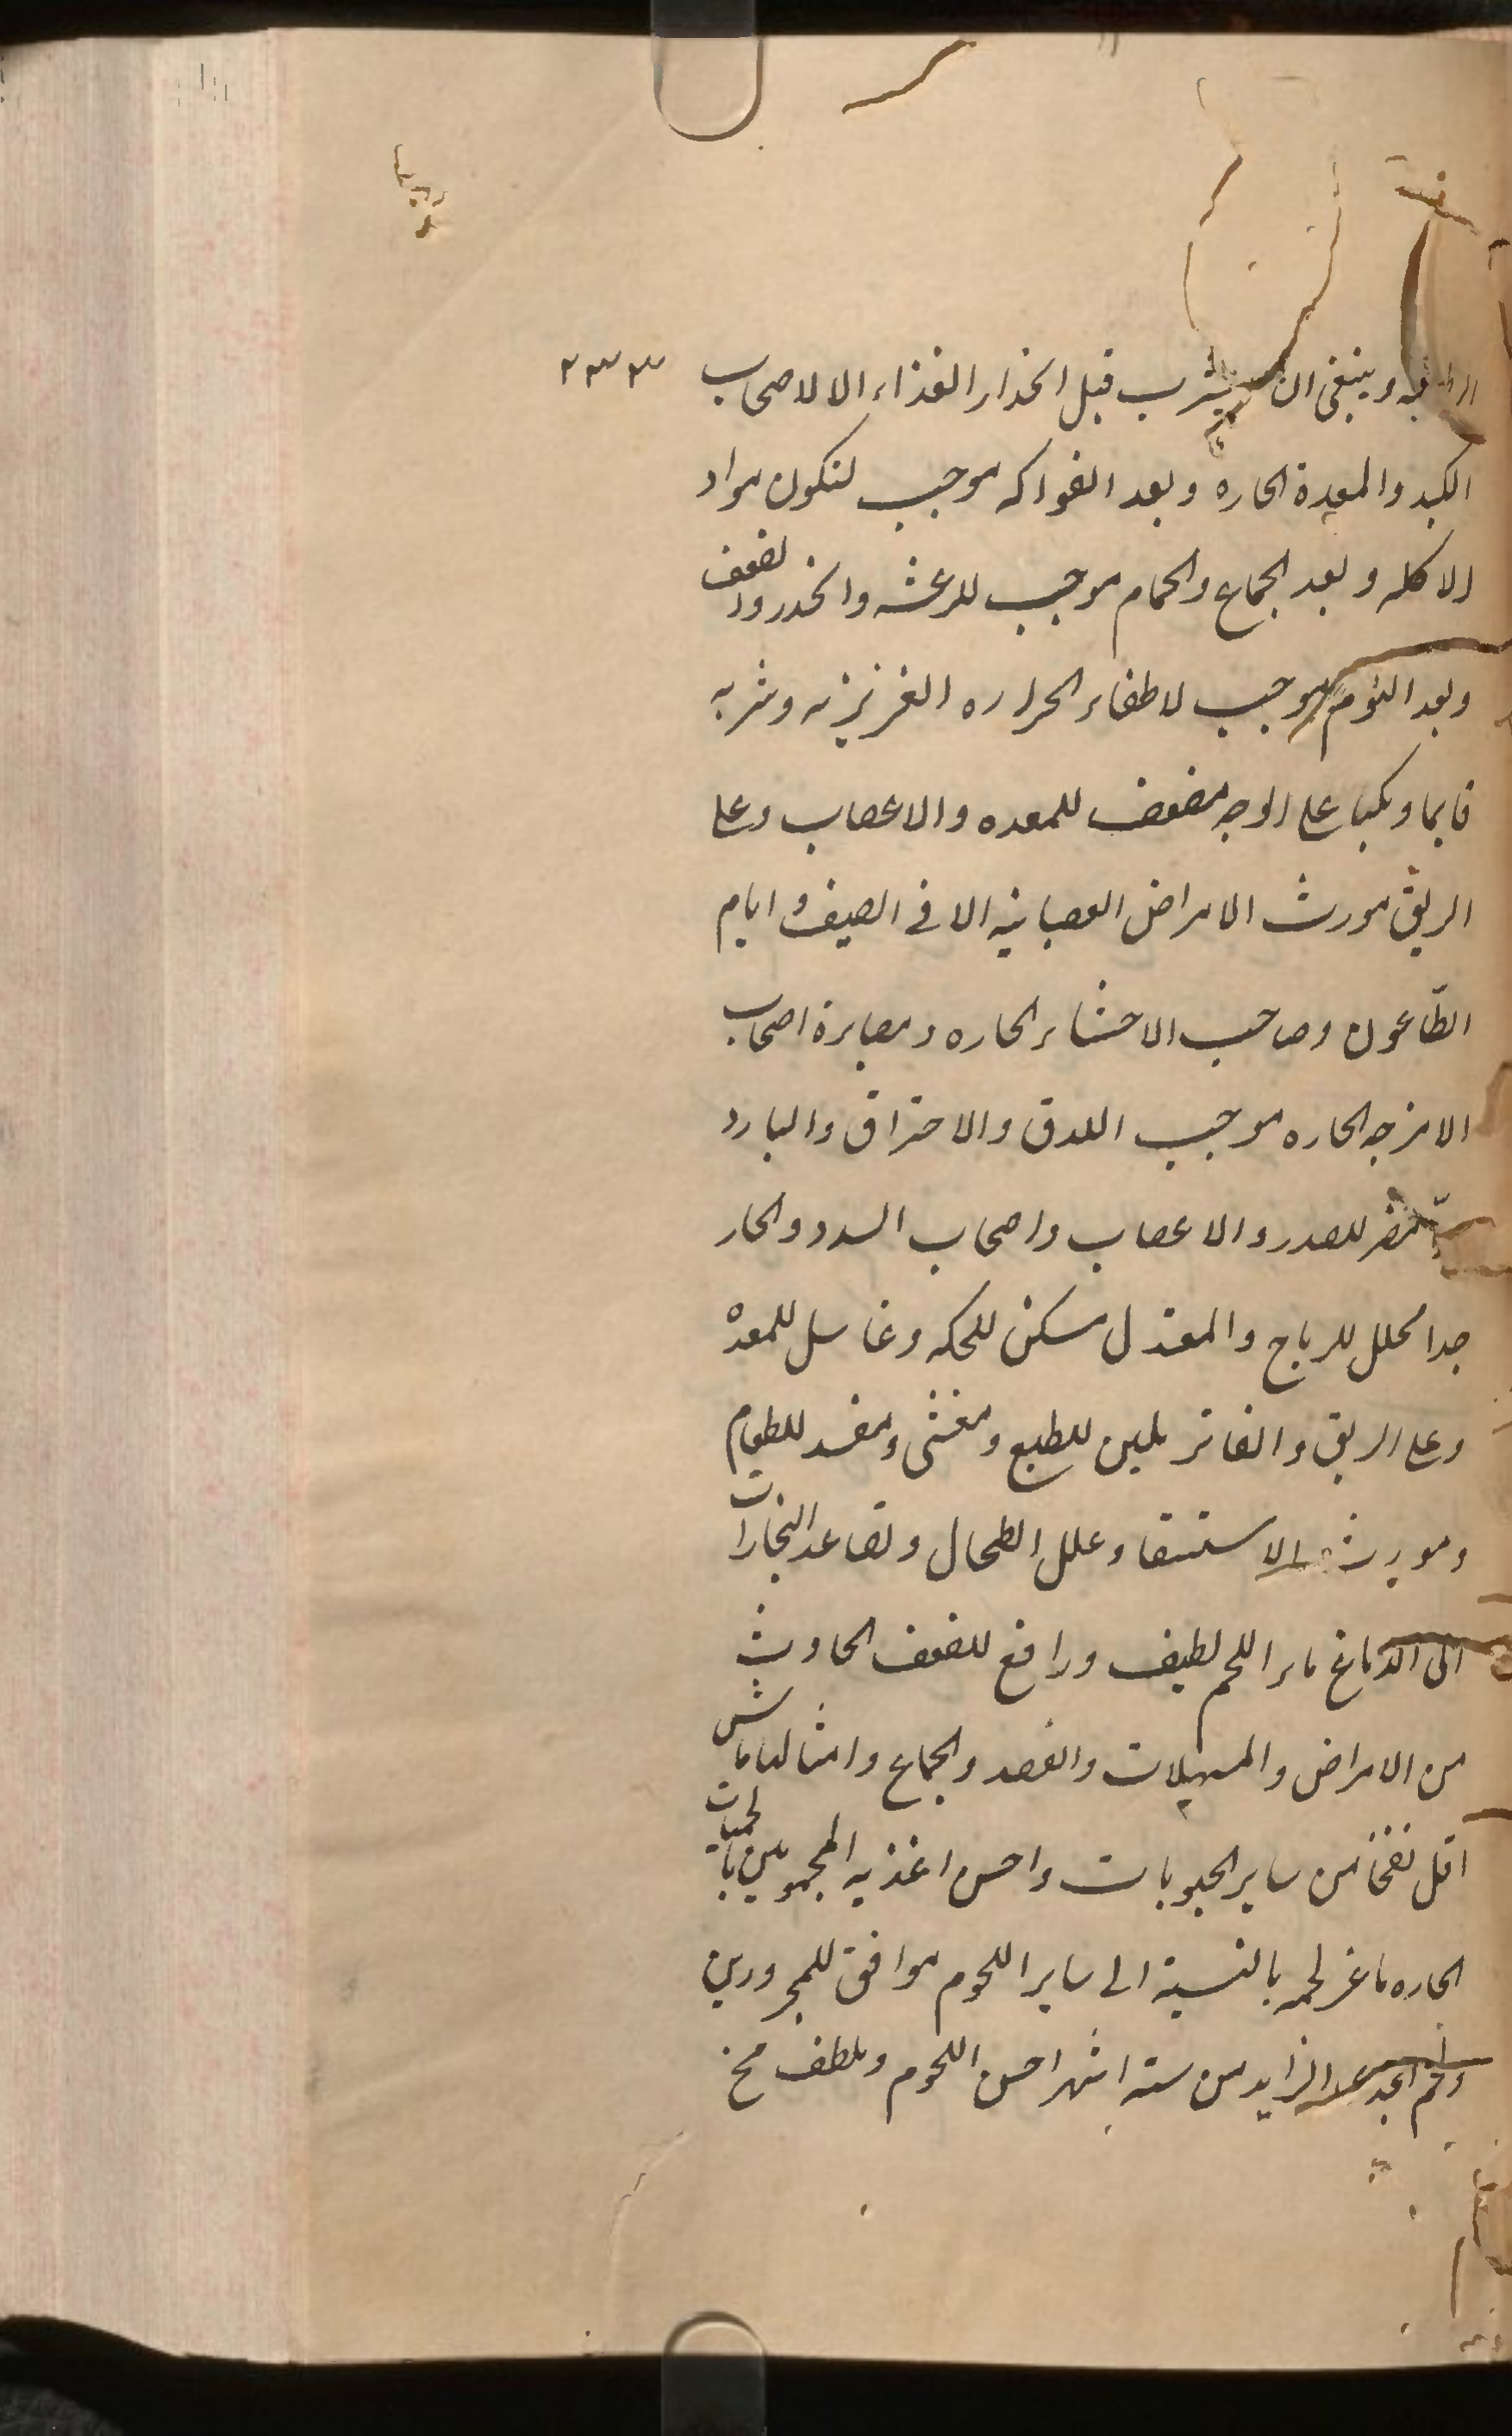 وينبغى ان يشرب قبل انحدار الغذاء الا لاصحاب ٢٣٣
الكبد والمعدة الحاره وبعد الفواكه موجب لتكون مواد
الاكله وبعد الجماع والحمام موجب للرعشه والخدر والضعف
وبعد النوم موجب لاطفاء الحراره الغريزيه وشربه
قايما ومكبا على الوجه مضعف للمعده والاعصاب وعلى
الريق مورث الامراض العصبانيه الا فى الصيف و ايام
الطاعون وصاحب الاحشاء الحاره ومصابرة اصحاب
الامزجه الحاره موجب للدق والاحتراق والبارد
مضر للصدر والاعصاب واصحاب السدد والحار
جدا محلل للرياح والمعتدل مسكن للحكه وغاسل للمعدة
وعلى الريق والفاتر ملين للطبع ومغثى ومفسد للطعام
ومورث الاستسقا وعلل الطحال وتصاعد البخارات
الى الدماغ ماء اللحم لطيف ورافع للضعف الحادث
من الامراض والمسهلات والفصد والجماع وامثالها ماش
اقل نفخا من ساير الحبوبات واحسن اغذيه المحمومين بالحميات
الحاره ماعز لحمه بالنسبة الى ساير اللحوم موافق للمحرورين
ولحم الزايد من سته اشهر احسن اللحوم والطف مخ